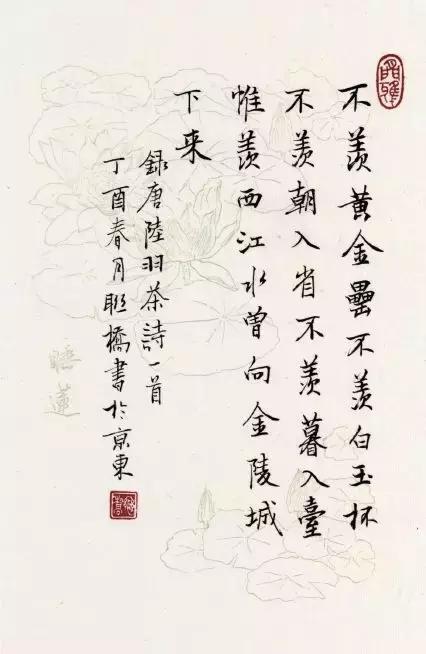 不羨黃金罍不羨白玉杯
不羨朝入省不羨暮入臺
惟羨西江水曾向金陵城
下来
錄唐陸羽茶詩一首
丁酉春月橋書於京東
睡蓮